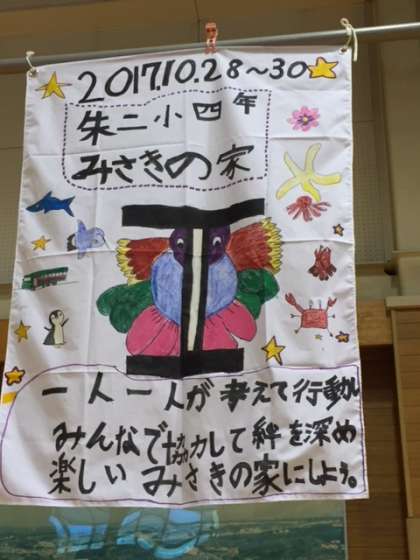 2017.10.28～30
朱二小四年
みさきの家
一人一人が考えて行動
みんなで協力して絆を深め
楽しいみさきの家にしよう。